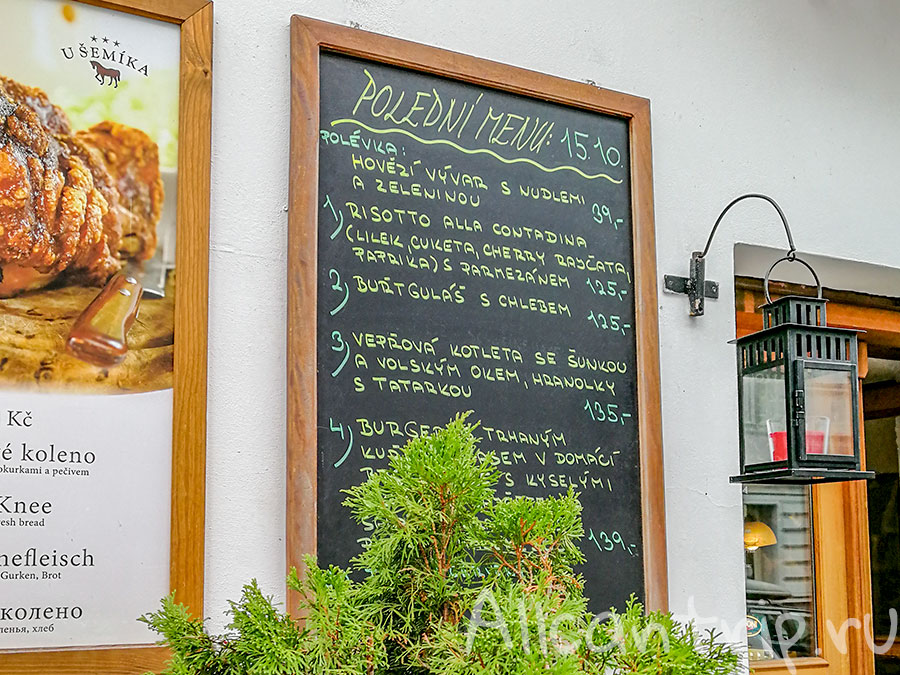 U ŠEMÍKA
Kč
é koleno
okurkami a pečivem
Knee
resh bread
nefleisch
Gurken, Brot
колено
ленья, хлеб
POLEDNÍ MENU: 15.10.
POLÉVKA:
HOVĚZÍ VÝVAR S NUDLEMI
A ZELENINOU 39,-
1) RISOTTO ALLA CONTADINA
(LILEK, CUKETA, CHERRY RAJČATA,
PAPRIKA) S PARMEZÁNEM 125,-
2) BUŘTGULÁŠ S CHLEBEM 125,-
3) VEPŘOVÁ KOTLETA SE ŠUNKOU
A VOLSKÝM OKEM, HRANOLKY
S TATARKOU 135,-
4) BURGER TRHANÝM
V DOMÁCÍ
S KYSELÝMI
139,-
Allcantrip.ru